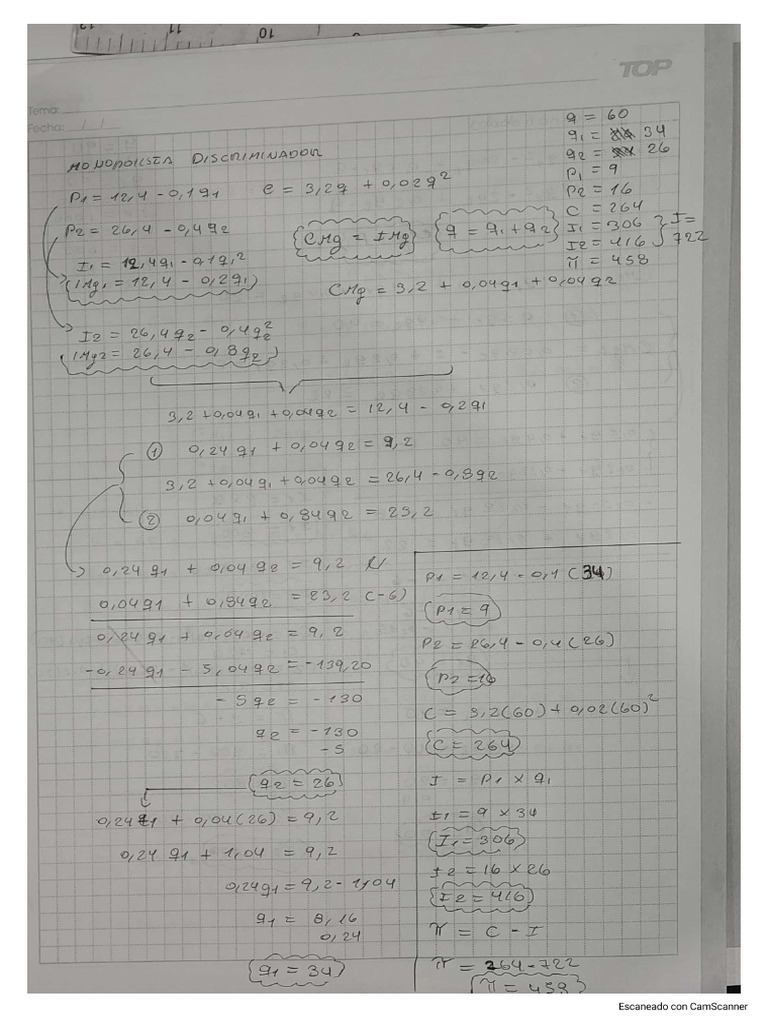 12 11 10
TOP
Tema:
Fecha: / /
MONOPOLISTA DISCRIMINADOR
q = 60
q1 = 34
q2 = 26
P1 = 9
P2 = 16
C = 264
I1 = 306
I2 = 416 } I = 722
π = 458
P1 = 12,4 - 0,1q1 C = 3,2q + 0,02q²
P2 = 26,4 - 0,4q2 CMg = IMg q = q1 + q2
I1 = 12,4q1 - 0,1q1²
IMg1 = 12,4 - 0,2q1
CMg = 3,2 + 0,04q1 + 0,04q2
I2 = 26,4q2 - 0,4q2²
IMg2 = 26,4 - 0,8q2
3,2 + 0,04q1 + 0,04q2 = 12,4 - 0,2q1
① 0,24q1 + 0,04q2 = 9,2
3,2 + 0,04q1 + 0,04q2 = 26,4 - 0,8q2
② 0,04q1 + 0,84q2 = 23,2
0,24q1 + 0,04q2 = 9,2
0,04q1 + 0,84q2 = 23,2 (-6)
0,24q1 + 0,04q2 = 9,2
-0,24q1 - 5,04q2 = -139,20
-5q2 = -130
q2 = -130
-5
q2 = 26
0,24q1 + 0,04(26) = 9,2
0,24q1 + 1,04 = 9,2
0,24q1 = 9,2 - 1,04
q1 = 8,16
0,24
q1 = 34
P1 = 12,4 - 0,1(34)
P1 = 9
P2 = 26,4 - 0,4(26)
P2 = 16
C = 3,2(60) + 0,02(60)²
C = 264
I = P1 × q1
I1 = 9 × 34
I1 = 306
I2 = 16 × 26
I2 = 416
π = C - I
π = 264 - 722
π = 458
Escaneado con CamScanner